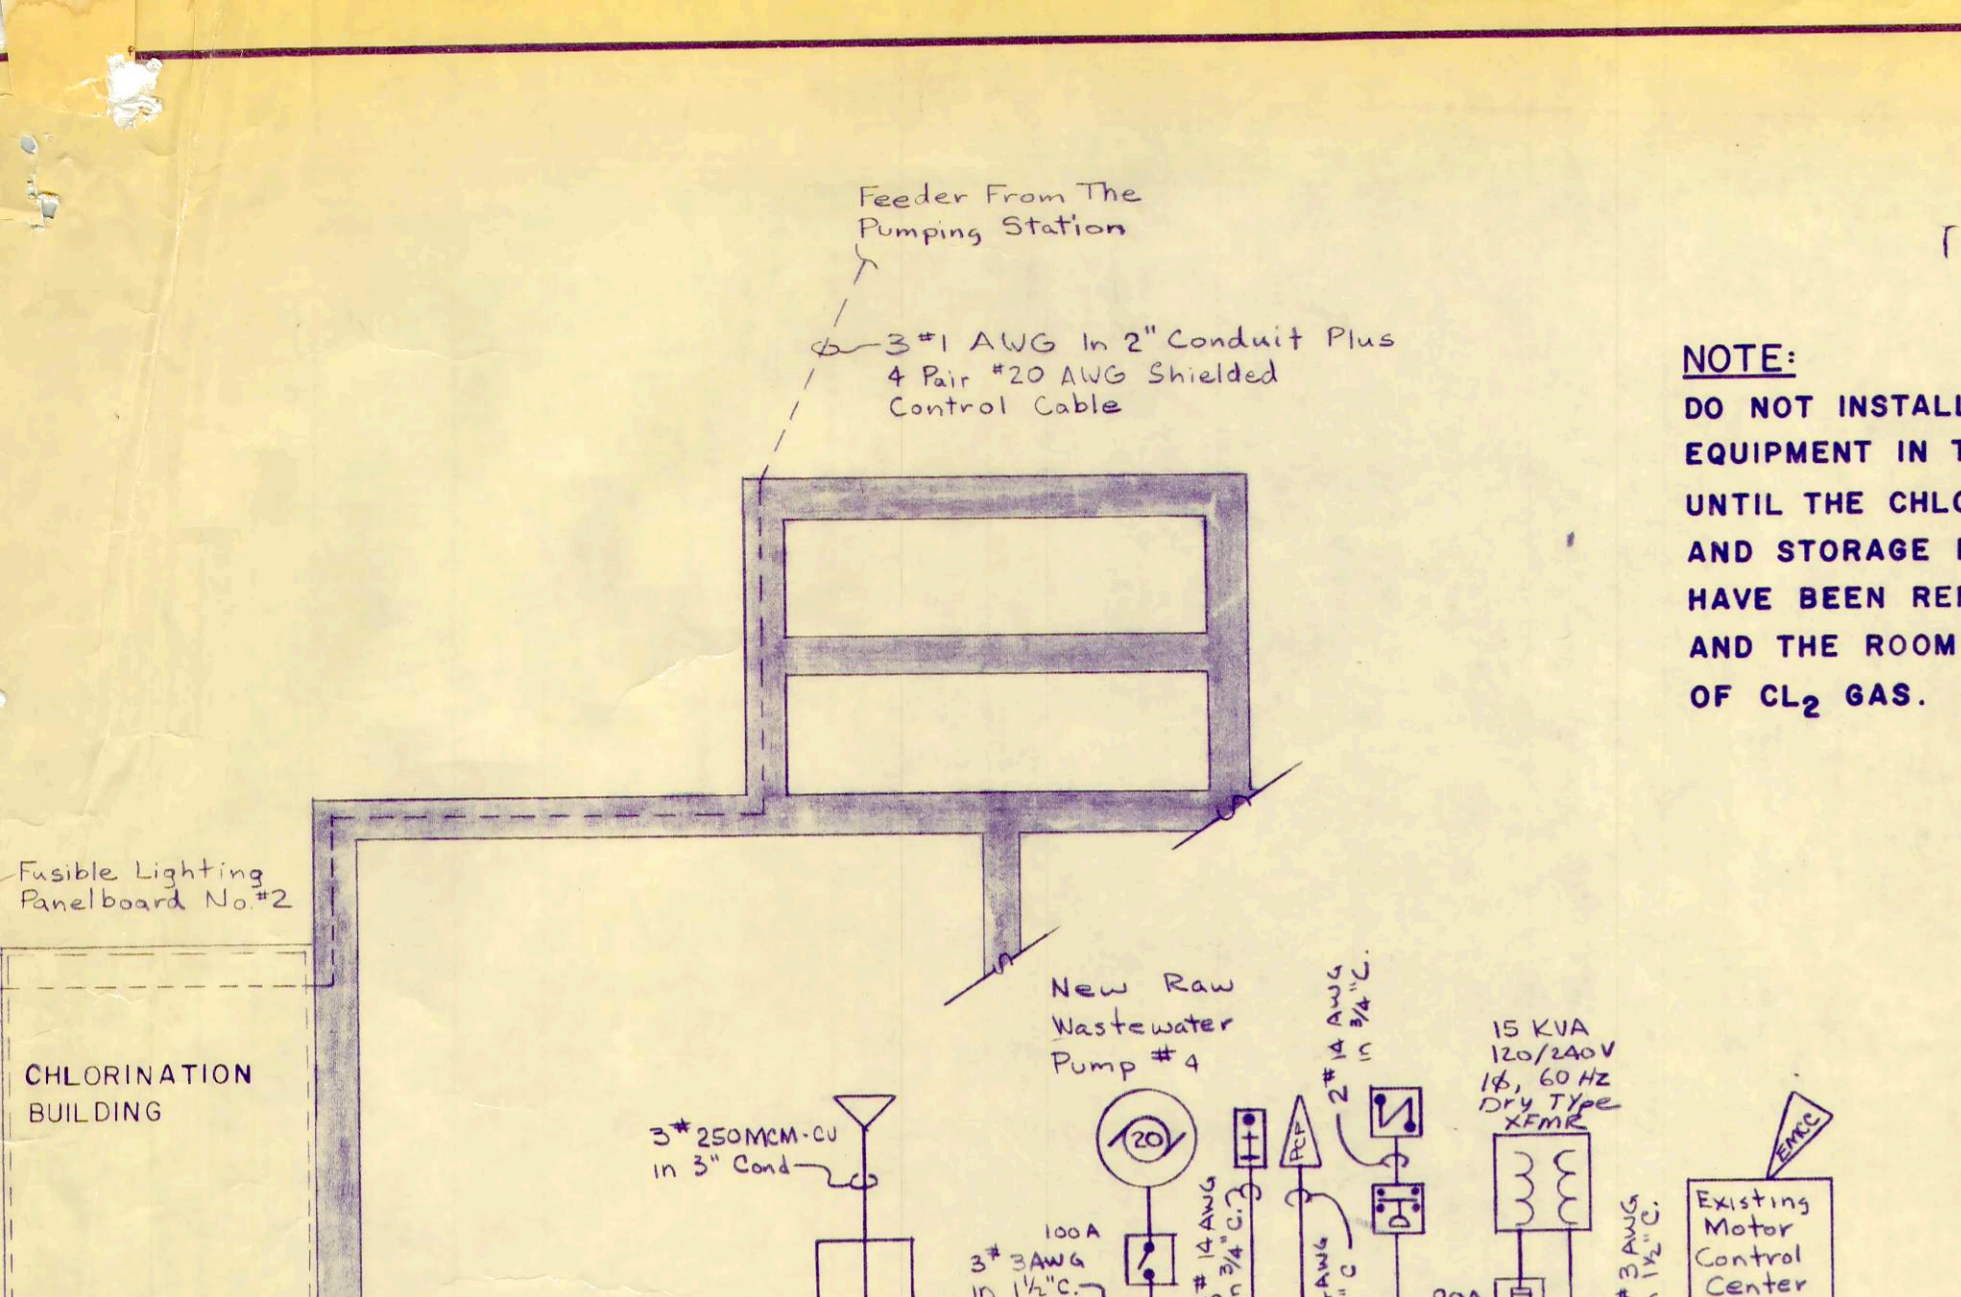 Feeder From The
Pumping Station
3 #1 AWG In 2" Conduit Plus
4 Pair #20 AWG Shielded
Control Cable
NOTE:
DO NOT INSTALL
EQUIPMENT IN
UNTIL THE
AND STORAGE
HAVE BEEN
AND THE ROOM
OF CL2 GAS.
Fusible Lighting
Panelboard No.#2
CHLORINATION
BUILDING
New Raw
Wastewater
Pump #4
3#250MCM-CU
in 3" Cond
20
100A
3# 3AWG
in 1½"C.
# 14 AWG
in 3/4" C.
2#14 AWG
in 3/4"C.
15 KVA
120/240V
1ϕ, 60 HZ
Dry Type
XFMR
EMCC
Existing
Motor
Control
Center
# 3 AWG
1½"C.